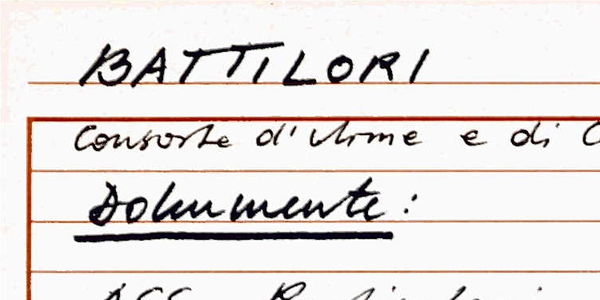 BATTILORI
Consorte d'Arme e di C
Dokumente: